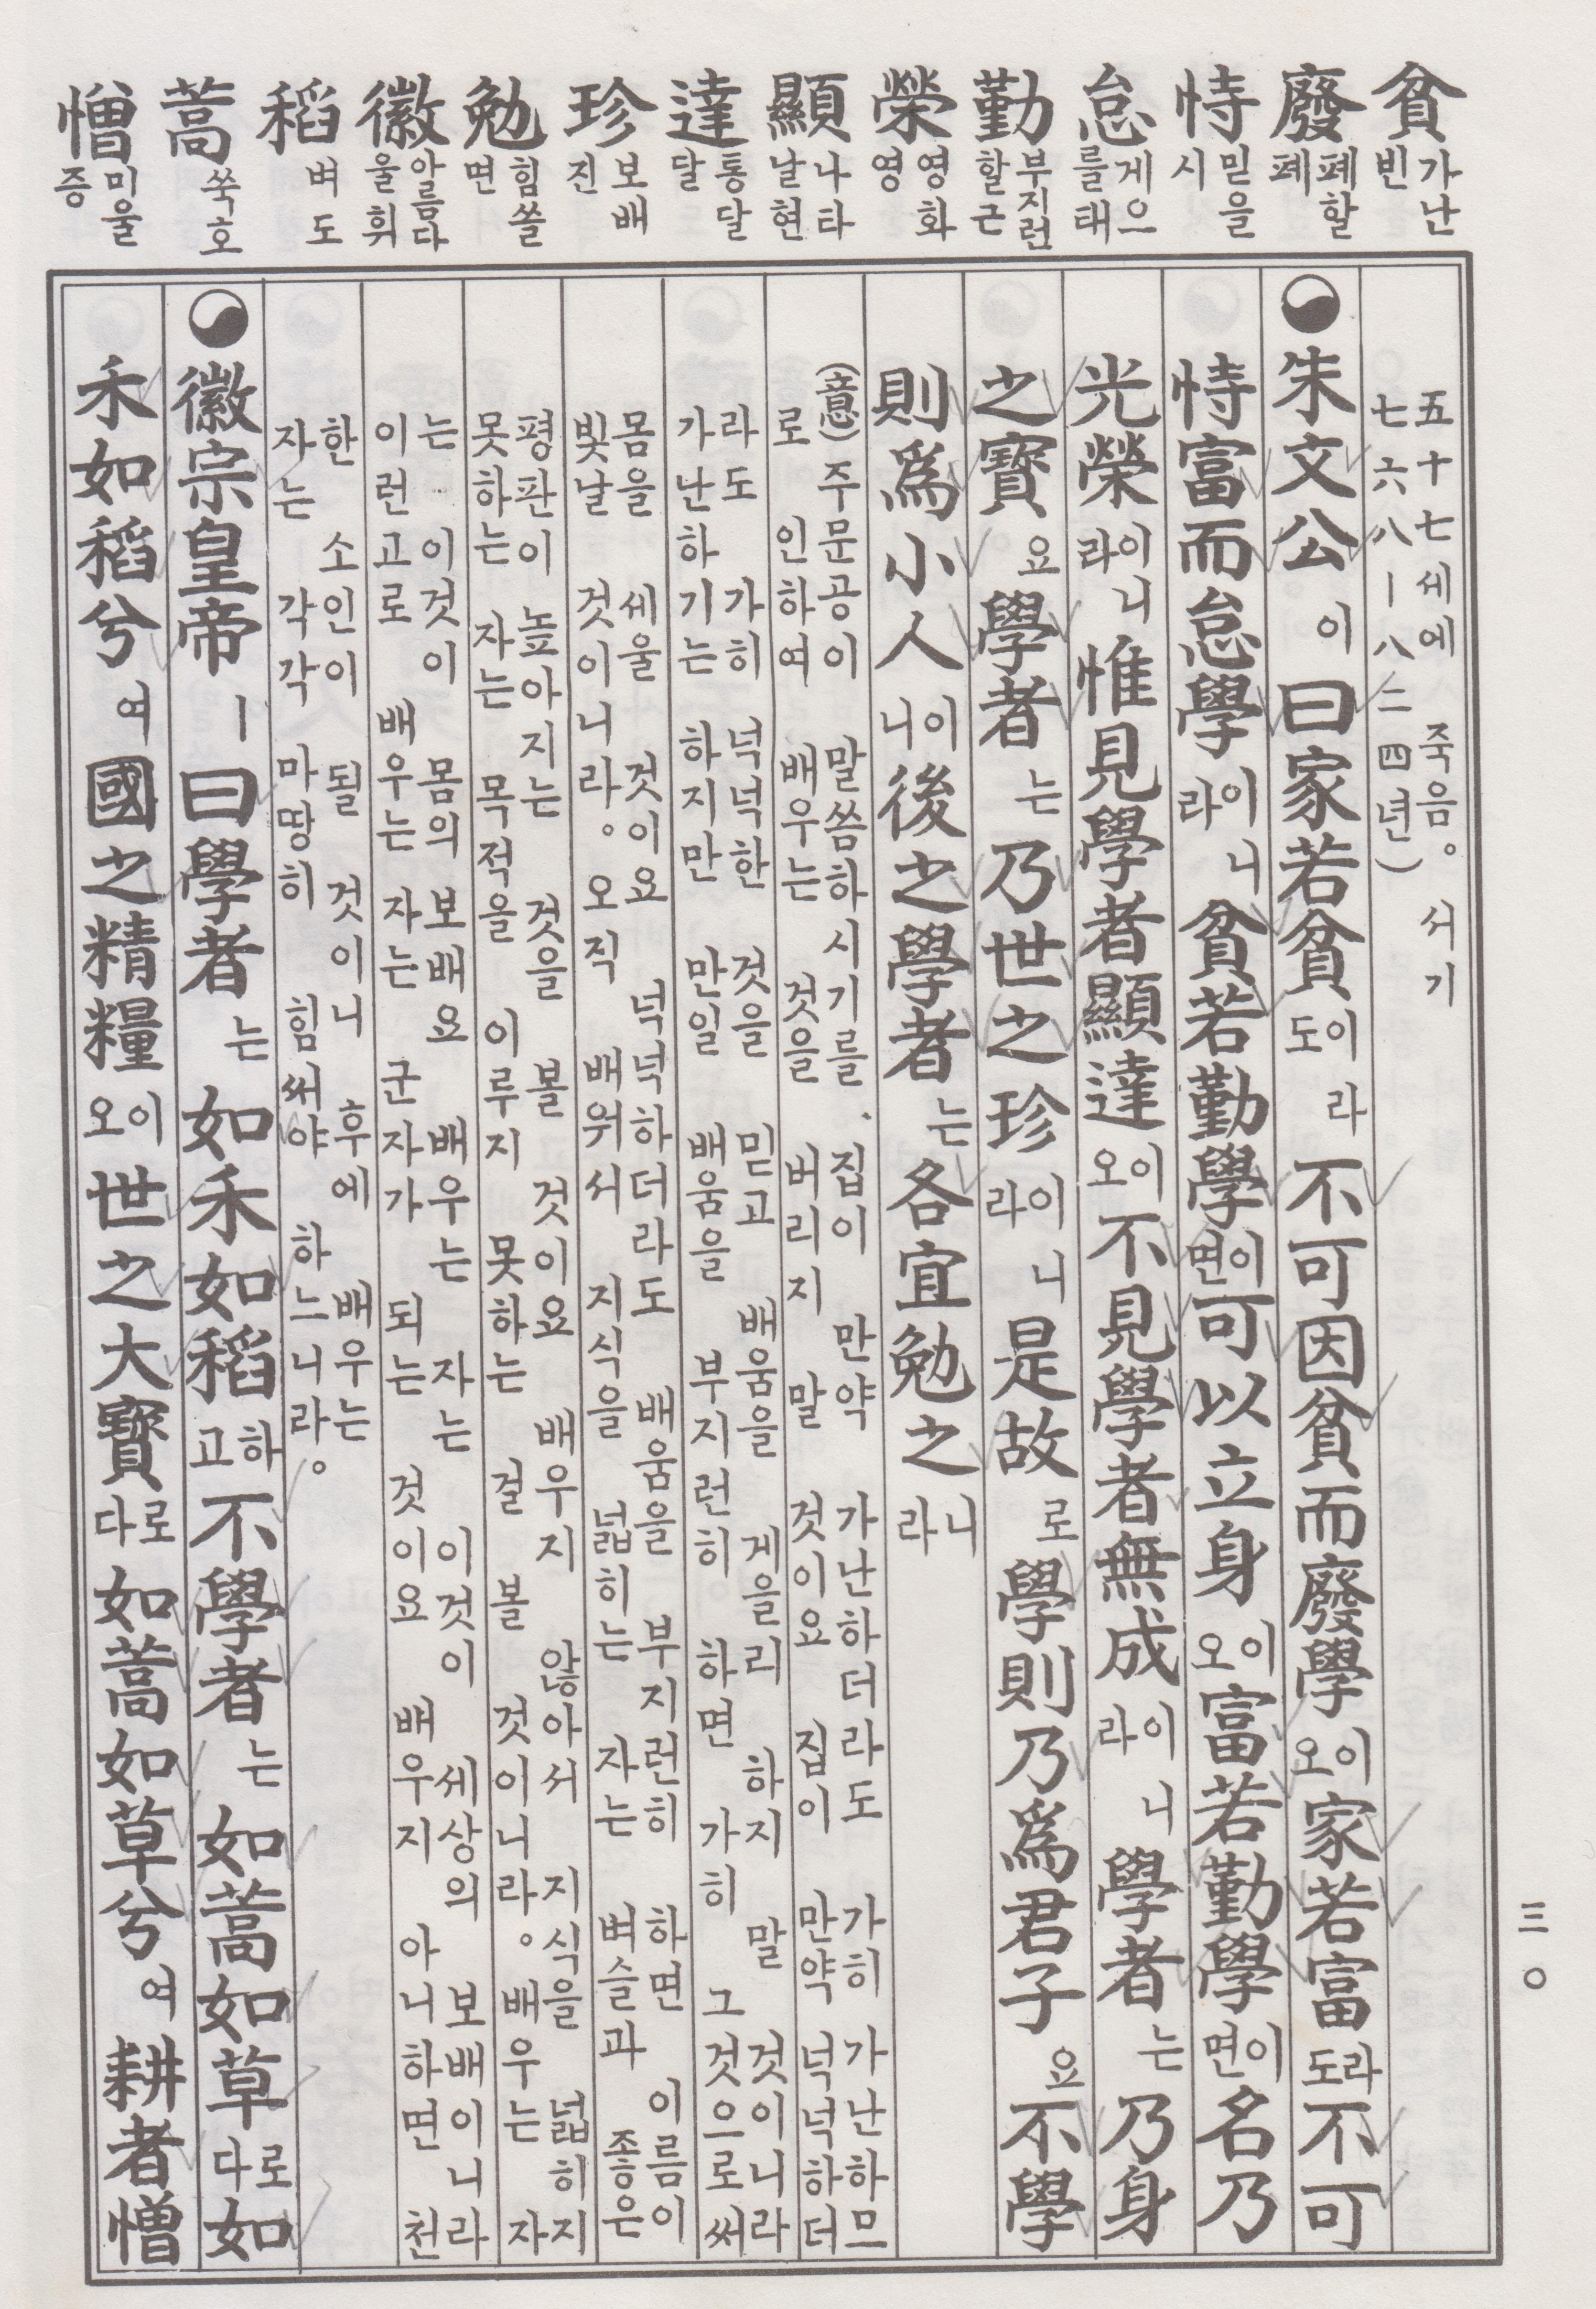 貧 가난 빈
廢 폐할 폐
恃 믿을 시
怠 게으를 태
勤 부지런할 근
榮 영화 영
顯 나타날 현
達 통달 달
珍 보배 진
勉 힘쓸 면
徽 아름다울 휘
稻 벼 도
蒿 쑥 호
憎 미울 증
五十七세에 죽음。 서기
七六八—八二四년)
朱文公이 曰家若貧이라도 不可因貧而廢學이오 家若富라도 不可
恃富而怠學이라니 貧若勤學이면 可以立身이오 富若勤學이면 名乃
光榮이라니 惟見學者顯達이오 不見學者無成이라니 學者는 乃身
之寶요 學者는 乃世之珍이라니 是故로 學則乃爲君子요 不學
則爲小人이니 後之學者는 各宜勉之니라
(意) 주문공이 말씀하시기를、 집이 만약 가난하더라도 가히 가난하므
로 인하여 배우는 것을 버리지 말 것이요 집이 만약 넉넉하더
라도 가히 넉넉한 것을 믿고 배움을 게을리 하지 말 것이니라
가난하기는 하지만 만일 배움을 부지런히 하면 가히 그것으로써
몸을 세울 것이요 넉넉하더라도 배움을 부지런히 하면 이름이
빛날 것이니라。 오직 배워서 지식을 넓히는 자는 벼슬과 좋은
평판이 높아지는 것을 볼 것이요 배우지 않아서 지식을 넓히지
못하는 자는 목적을 이루지 못하는 걸 볼 것이니라。 배우는 자
는 이것이 몸의 보배요 배우는 자는 이것이 세상의 보배이니라
이런고로 배우는 자는 군자가 되는 것이요 배우지 아니하면 천
한 소인이 될 것이니 후에 배우는
자는 각각 마땅히 힘써야 하느니라。
徽宗皇帝ㅣ 曰學者는 如禾如稻하고 不學者는 如蒿如草로다 如
禾如稻兮여 國之精糧이오 世之大寶로다 如蒿如草兮여 耕者憎
三〇